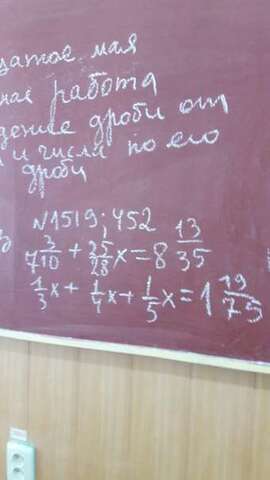 цатое мая
ная работа
дение дроби от
и числа по его
дроби
№1519; 452
3/710 + 25/28 x = 8 13/35
1/3 x + 1/4 x + 1/5 x = 1 19/75